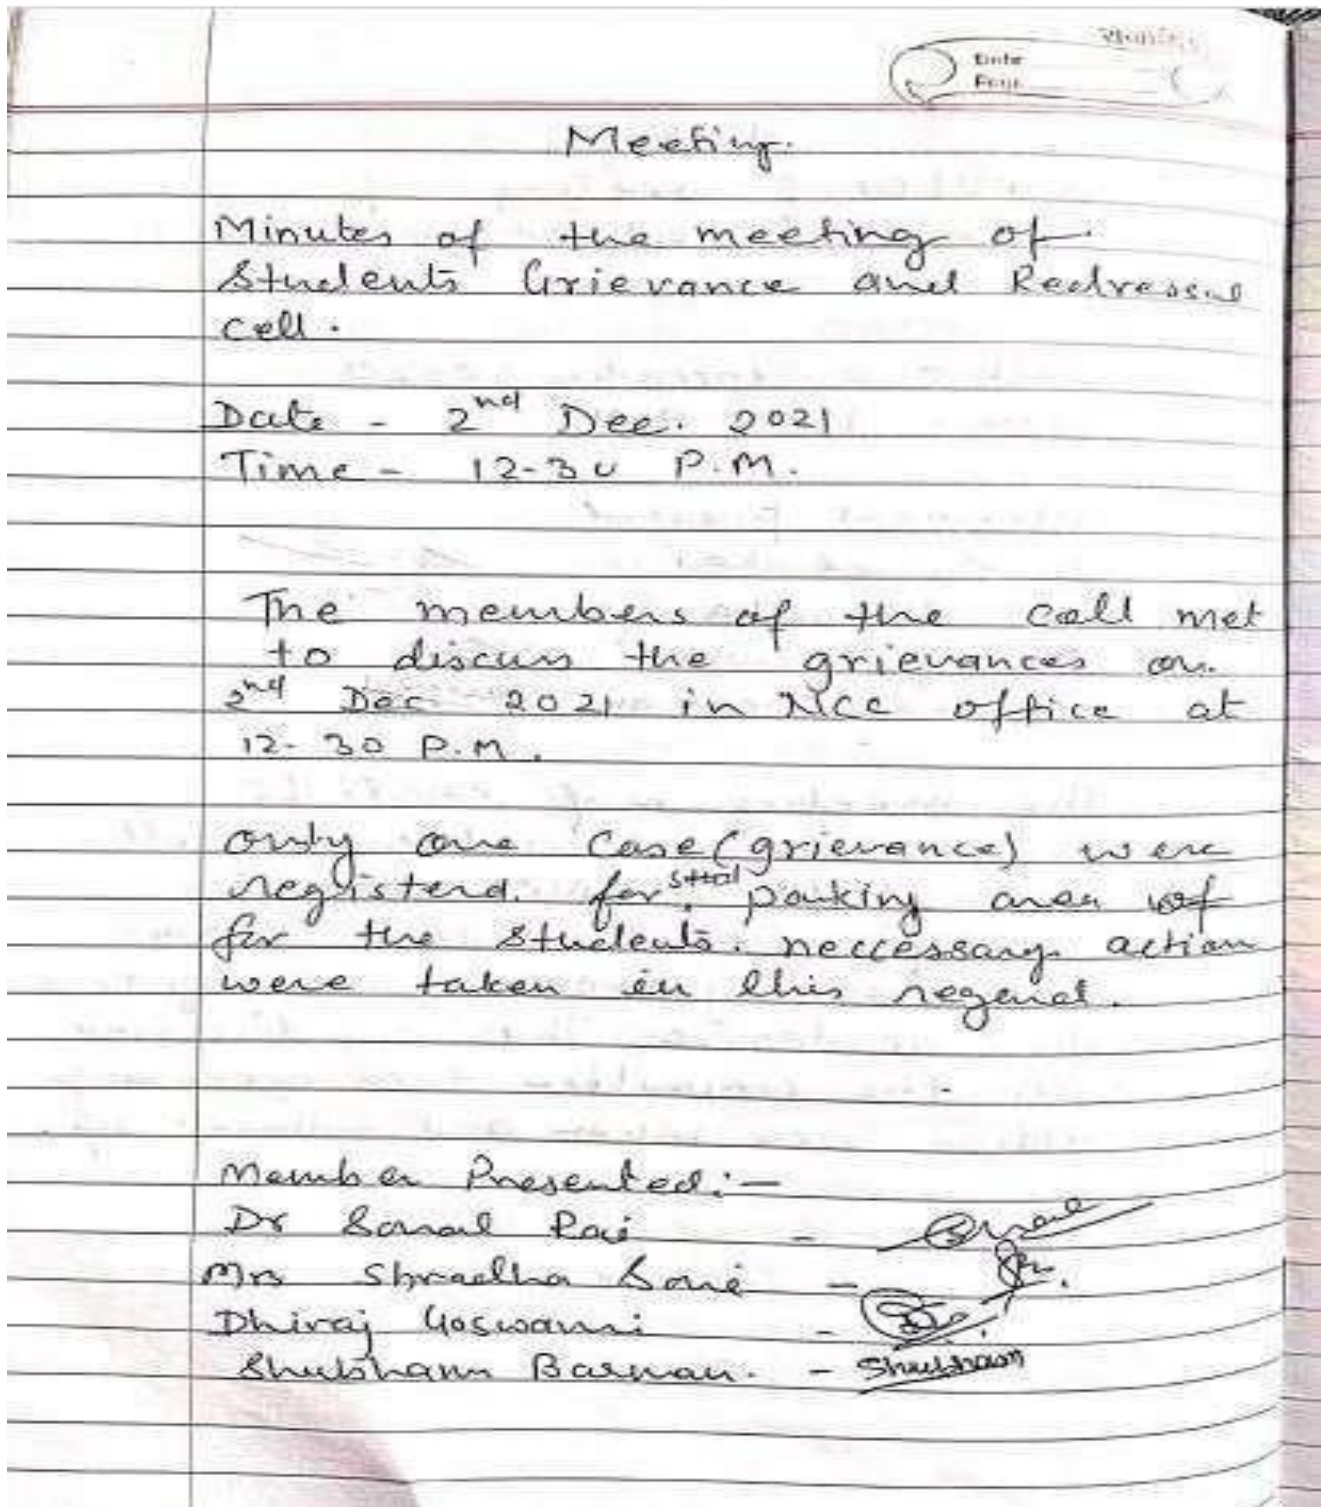 Date
Page
Meeting.
Minutes of the meeting of
Students Grievance and Redressal
cell.
Date - 2nd Dec. 2021
Time - 12-30 P.M.
The members of the cell met
to discuss the grievances on
2nd Dec 2021 in NCC office at
12-30 P.M.
only one case (grievance) were
registerd. for parking area
for the students. neccessary action
were taken in this regard.
Member Presented:-
Dr Sonal Rai -
Mrs Shradha Soni -
Dhiraj Goswami -
Shubham Barman. - Shubham